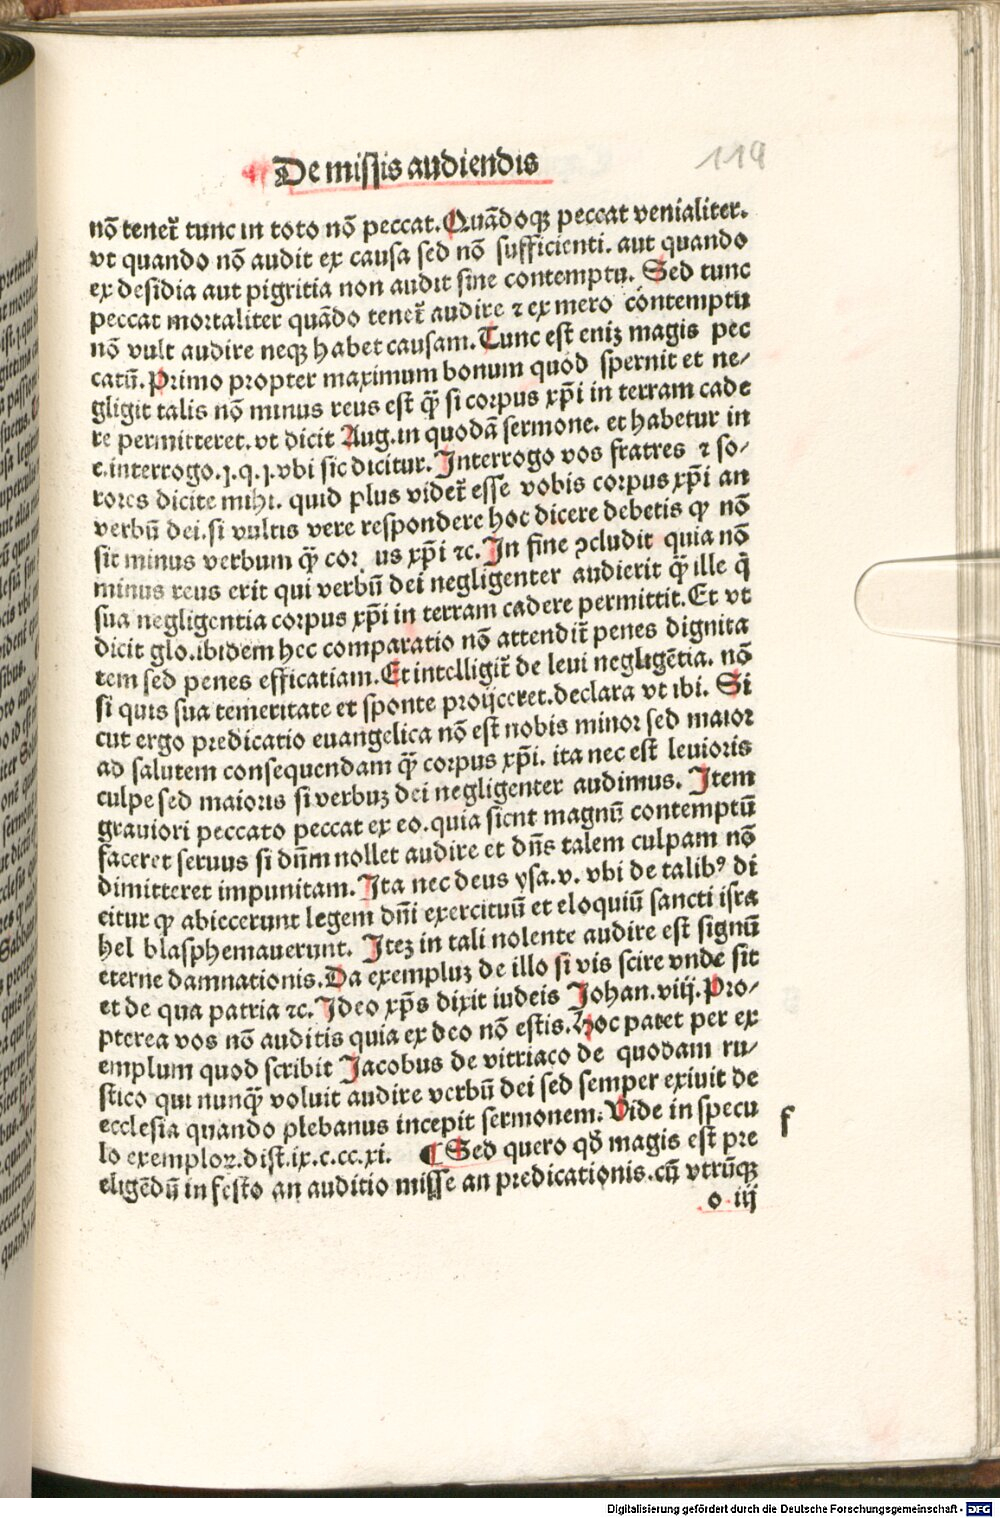 De missis audiendis
119
nō teneť tunc in toto nō peccat. Quādoqꝫ peccat venialiter.
vt quando nō audit ex causa sed nō sufficienti. aut quando
ex desidia aut pigritia non audit sine contemptu. Sed tunc
peccat mortaliter quādo teneť audire ⁊ ex mero contemptu
nō vult audire neqꝫ habet causam. Tunc est eniꝫ magis pec
catū. Primo propter maximum bonum quod spernit et ne⸗
gligit talis nō minus reus est q̄ȝ si corpus xp̄i in terram cade
re permitteret. vt dicit Aug. in quodā sermone. et habetur in
c. interrogo. j. q. j. vbi sic dicitur. Interrogo vos fratres ⁊ so⸗
rores dicite mihi. quid plus videť esse vobis corpus xp̄i an
verbū dei. si vultis vere respondere hoc dicere debetis ꝙ nō
sit minus verbum q̄ȝ cor us xp̄i ⁊c. In fine ꝯcludit quia nō
minus reus erit qui verbū dei negligenter audierit q̄ȝ ille q̄
sua negligentia corpus xp̄i in terram cadere permittit. Et vt
dicit glo. ibidem hec comparatio nō attendiť penes dignita
tem sed penes efficatiam. Et intelligiť de leui negligētia. nō
si quis sua temeritate et sponte proijceret. declara vt ibi. Si
cut ergo predicatio euangelica nō est nobis minor sed maior
ad salutem consequendam q̄ȝ corpus xp̄i. ita nec est leuioris
culpe sed maioris si verbuꝫ dei negligenter audimus. Item
grauiori peccato peccat ex eo. quia sicut magnū contemptū
faceret seruus si dn̄m nollet audire et dn̄s talem culpam nō
dimitteret impunitam. Ita nec deus ysa. v. vbi de talibꝰ di
citur ꝙ abiecerunt legem dn̄i exercituū et eloquiū sancti isra
hel blasphemauerunt. Iteꝫ in tali nolente audire est signū
eterne damnationis. Da exempluꝫ de illo si vis scire vnde sit
et de qua patria ⁊c. Ideo xp̄s dixit iudeis Johan. viij. Pro⸗
pterea vos nō auditis quia ex deo nō estis. Hoc patet per ex
emplum quod scribit Jacobus de vitriaco de quodam ru⸗
stico qui nunq̄ȝ voluit audire verbū dei sed semper exiuit de
ecclesia quando plebanus incepit sermonem. Vide in specu
lo exemploꝝ. dist. ix. c. cc. xi. ¶ Sed quero qd̄ magis est pre
eligēdū in festo an auditio misse an predicationis. cū vtrūqꝫ
f
o iij
Digitalisierung gefördert durch die Deutsche Forschungsgemeinschaft - DFG